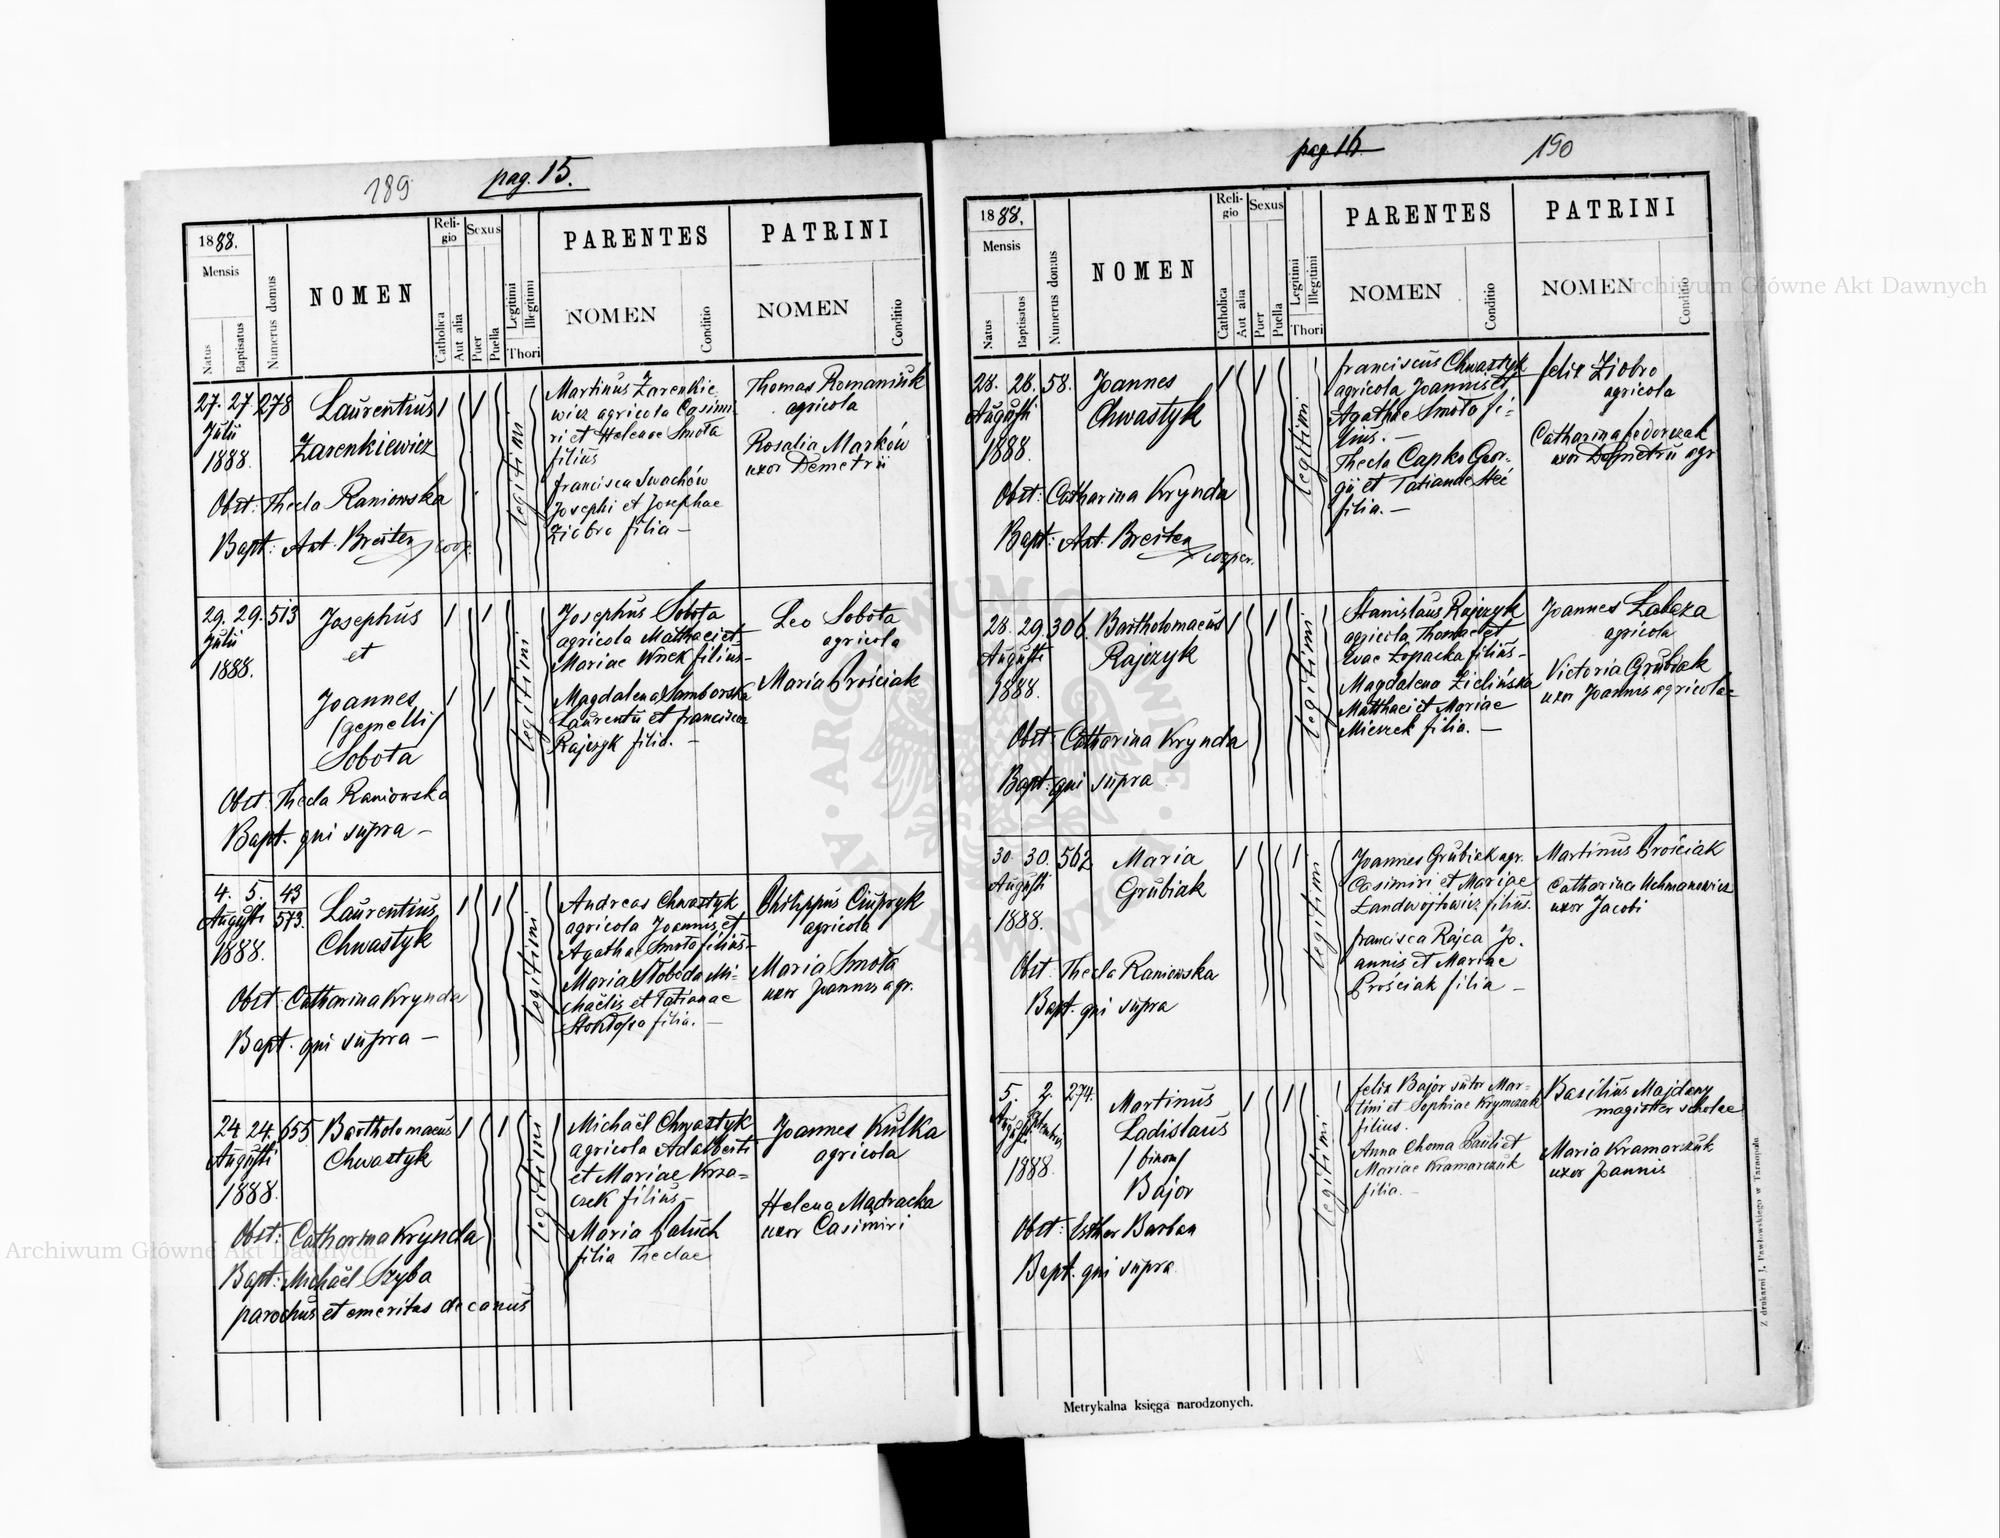 189
pag. 15.
1888.
Mensis
Natus
Baptisatus
Numerus domus
NOMEN
Religio
Catholica
Aut alia
Sexus
Puer
Puella
Legitimi
Illegitimi
Thori
PARENTES
NOMEN
Conditio
PATRINI
NOMEN
Conditio
27. 27 278
Julii
1888.
Laurentius
Zarenkiewicz
Obst: Thecla Raniowska
Bapt: Ant. Breiten coop.
legitimi
Martinus Zarenkie
wicz agricola Casimi
ri et Helenae Smoła
filius
Francisca Swachów
Josephi et Josephae
Ziobro filia —
Thomas Romaniuk
agricola
Rosalia Marków
uxor Demetrii
29. 29. 513
Julii
1888.
Josephus
et
Joannes
/gemelli/
Sobota
Obst: Thecla Raniowska
Bapt. qui supra —
legitimi
Josephus Sobota
agricola Matthaei et
Mariae Wnek filius —
Magdalena Samborska
Laurentii et Francisca
Rajczyk filia. —
Leo Sobota
agricola
Maria Prościak
4. 5. 43
Augusti 573.
1888.
Laurentius
Chwastyk
Obst: Catharina Krynda
Bapt. qui supra —
legitimi
Andreas Chwastyk
agricola Joannis et
Agathae Smoła filius —
Maria Słoboda Mi-
chaëlis et Tatianae
filia. —
Philippus Ciupryk
agricola
Maria Smoła
uxor Joannis agr.
24. 24. 655
Augusti
1888.
Bartholomaeus
Chwastyk
Obst: Catharina Krynda
Bapt: Michaël Szyba
parochus et emeritus decanus
legitimi
Michaël Chwastyk
agricola Adalberti
et Mariae Krza-
czek filius —
Maria Paluch
filia Theclae
Joannes Kulka
agricola
Helena Mądracka
uxor Casimiri
pag. 16.
190
1888.
Mensis
Natus
Baptisatus
Numerus domus
NOMEN
Religio
Catholica
Aut alia
Sexus
Puer
Puella
Legitimi
Illegitimi
Thori
PARENTES
NOMEN
Conditio
PATRINI
NOMEN
Conditio
28. 28. 58.
Augusti
1888.
Joannes
Chwastyk
Obst: Catharina Krynda
Bapt: Ant. Breiten cooper.
legitimi
Franciscus Chwastyk
agricola Joannis et
Agathae Smoła fi-
lius. —
Thecla Capko Geor-
gii et Tatianae Steć
filia. —
Felix Ziobro
agricola
Catharina Fedorczak
uxor Demetrii agr
28. 29. 306.
Augusti
1888.
Bartholomaeus
Rajczyk
Obst: Catharina Krynda
Bapt. qui supra
legitimi
Stanislaus Rajczyk
agricola Thomae et
Evae Łopacka filius —
Magdalena Zielińska
Matthaei et Mariae
Mierzek filia. —
Joannes Labęza
agricola
Victoria Grubiak
uxor Joannis agricolae
30. 30. 562
Augusti
1888.
Maria
Grubiak
Obst: Thecla Raniowska
Bapt. qui supra
legitimi
Joannes Grubiak agr.
Casimiri et Mariae
Landwójtowicz filius.
Francisca Rajca Jo-
annis et Mariae
Prościak filia —
Martinus Prościak
Catharina Uchmanowicz
uxor Jacobi
5. 2. 274.
Augusti Septembris
1888.
Martinus
Ladislaus
/binom/
Bajor
Obst: Esther Barban
Bapt. qui supra
legitimi
Felix Bajor sutor Mar-
tini et Sophiae Krymczak
filius.
Anna Choma Pauli et
Mariae Kramarczuk
filia. —
Basilius Majdany
magister scholae
Maria Kramarczuk
uxor Joannis
Metrykalna księga narodzonych.
Z drukarni J. Pawłowskiego w Tarnopolu
Archiwum Główne Akt Dawnych
Archiwum Główne Akt Dawnych